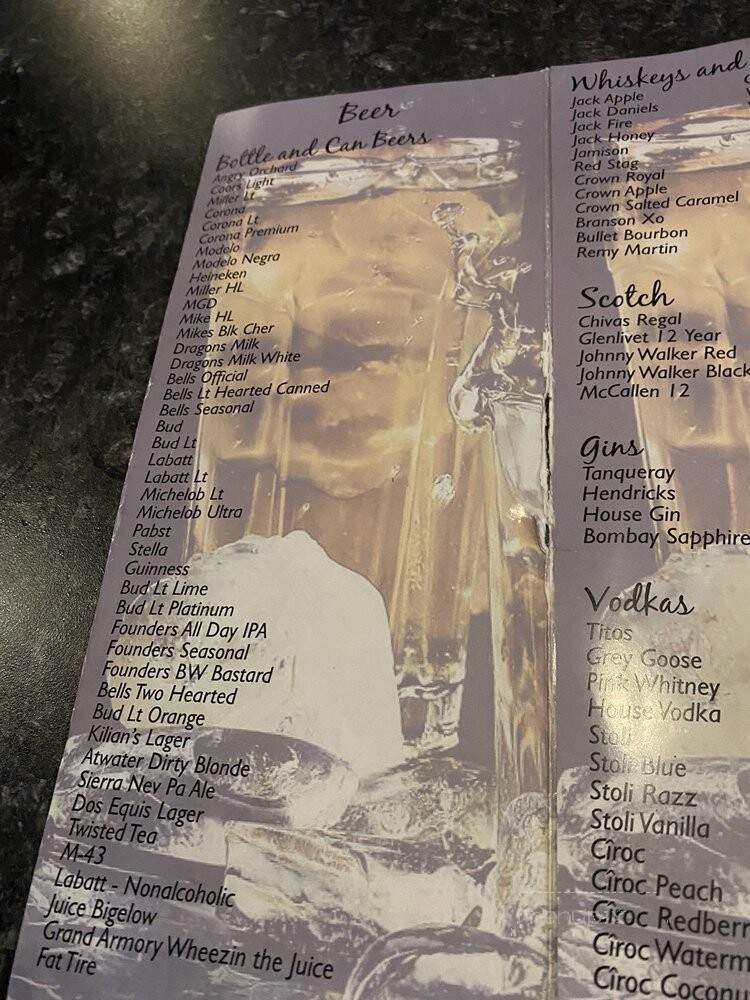 Beer
Bottle and Can Beers
Angry Orchard
Coors Light
Miller Lt
Corona
Corona Lt
Corona Premium
Modelo
Modelo Negra
Heineken
Miller HL
MGD
Mike HL
Mikes Blk Cher
Dragons Milk
Dragons Milk White
Bells Official
Bells Lt Hearted Canned
Bells Seasonal
Bud
Bud Lt
Labatt
Labatt Lt
Michelob Lt
Michelob Ultra
Pabst
Stella
Guinness
Bud Lt Lime
Bud Lt Platinum
Founders All Day IPA
Founders Seasonal
Founders BW Bastard
Bells Two Hearted
Bud Lt Orange
Kilian's Lager
Atwater Dirty Blonde
Sierra Nev Pa Ale
Dos Equis Lager
Twisted Tea
M-43
Labatt - Nonalcoholic
Juice Bigelow
Grand Armory Wheezin the Juice
Fat Tire
Whiskeys and
Jack Apple
Jack Daniels
Jack Fire
Jack Honey
Jamison
Red Stag
Crown Royal
Crown Apple
Crown Salted Caramel
Branson Xo
Bullet Bourbon
Remy Martin
Scotch
Chivas Regal
Glenlivet 12 Year
Johnny Walker Red
Johnny Walker Black
McCallen 12
Gins
Tanqueray
Hendricks
House Gin
Bombay Sapphire
Vodkas
Titos
Grey Goose
Pink Whitney
House Vodka
Stoli
Stoli Blue
Stoli Razz
Stoli Vanilla
Cîroc
Cîroc Peach
Cîroc Redberr
Cîroc Waterm
Cîroc Coconu